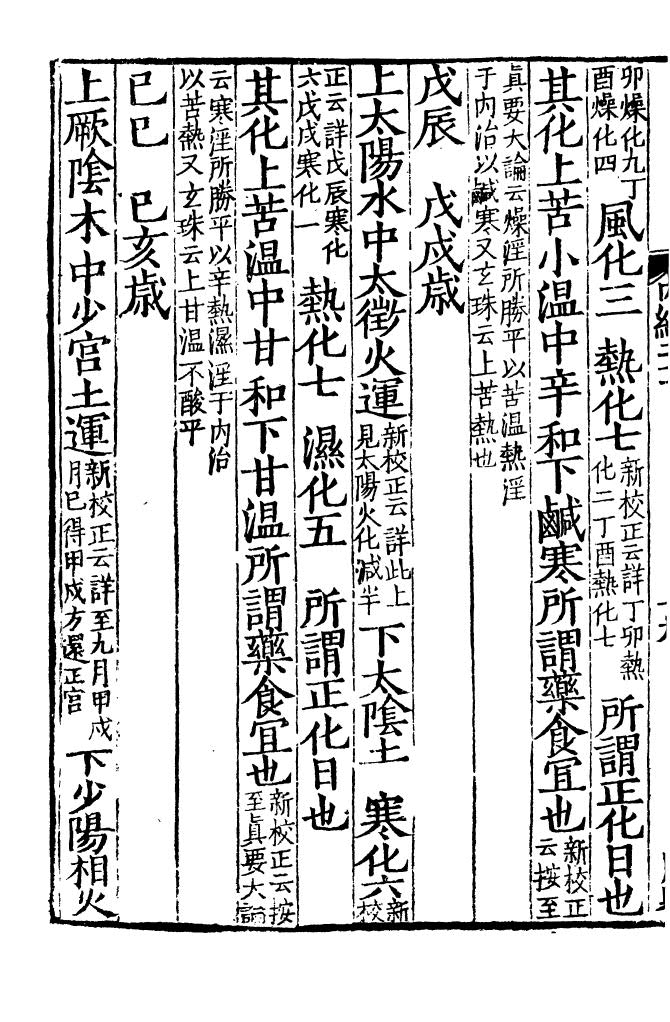 卯燥化九丁酉燥化四 風化三 熱化七 新校正云詳丁卯熱化二丁酉熱化七 所謂正化日也
其化上苦小溫中辛和下鹹寒所謂藥食冝也 新校正云按至
真要大論云燥淫所勝平以苦温熱淫于内治以鹹寒又玄珠云上苦熱也
戊辰 戊戌歲
上太陽水中太徵火運 新校正云詳此上見太陽火化減半 下太陰土 寒化六 新校
正云詳戊辰寒化六戊戌寒化一 熱化七 濕化五 所謂正化日也
其化上苦溫中甘和下甘溫所謂藥食冝也 新校正云按至真要大論
云寒淫所勝平以辛熱濕淫于内治以苦熱又玄珠云上甘温下酸平
己巳 己亥歲
上厥陰木中少宮土運 新校正云詳至九月甲戌月已得甲戌方還正宮 下少陽相火